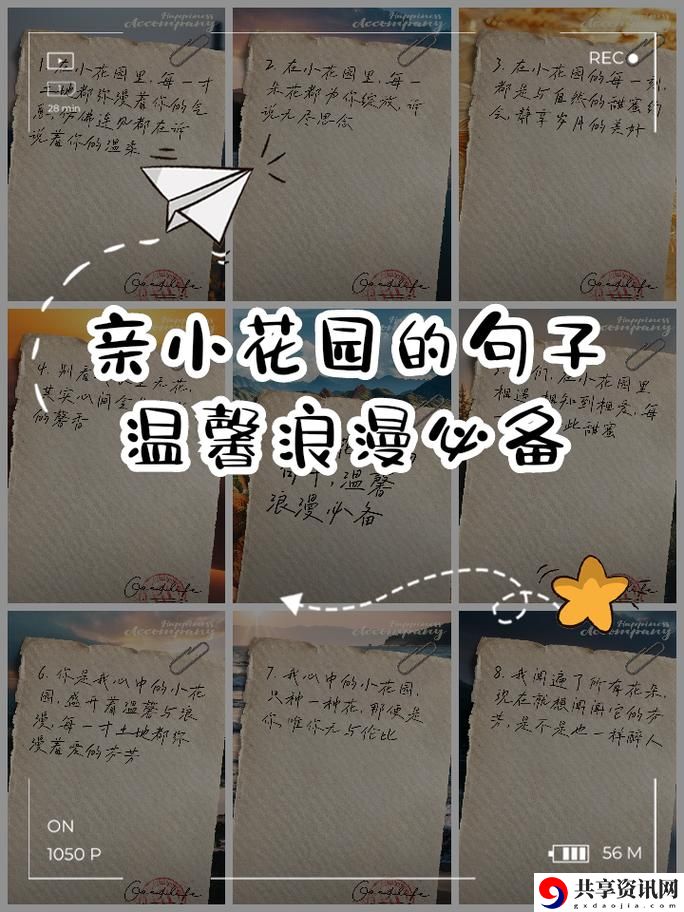 Happiness
Accompany
Happiness
Accompany
REC
28 min
1. 在小花园里，每一寸
土地都弥漫着你的气
息，仿佛连风都在诉
说着你的温柔
2. 在小花园里，每一
朵花都为你绽放，诉
说无尽思念
3. 在小花园的每一刻，
都是与自然的甜蜜约
会，静享岁月的美好
Good life
Good life
Good life
亲小花园的句子
温馨浪漫必备
Happiness
4. 别看
无花，
其实心间
的馨香
温馨
浪漫必备
们，在小花园里
相遇，相知到相爱，每
此甜蜜
Good life
Good life
Happiness
Accompany
Happiness
Accompany
Happiness
Accompany
6. 你是我心中的小花
园，盛开着温馨与浪
漫，每一寸土地都弥
漫着爱的芬芳
7. 我心中的小花园，
只种一种花，那便是
你，唯你无与伦比
8. 我闻遍了所有花朵，
现在就想闻闻它的芬
芳，是不是也一样醉人
ON
1050 P
56 M
Good life
Good life
Good life
共享资讯网
gxdaojia.com